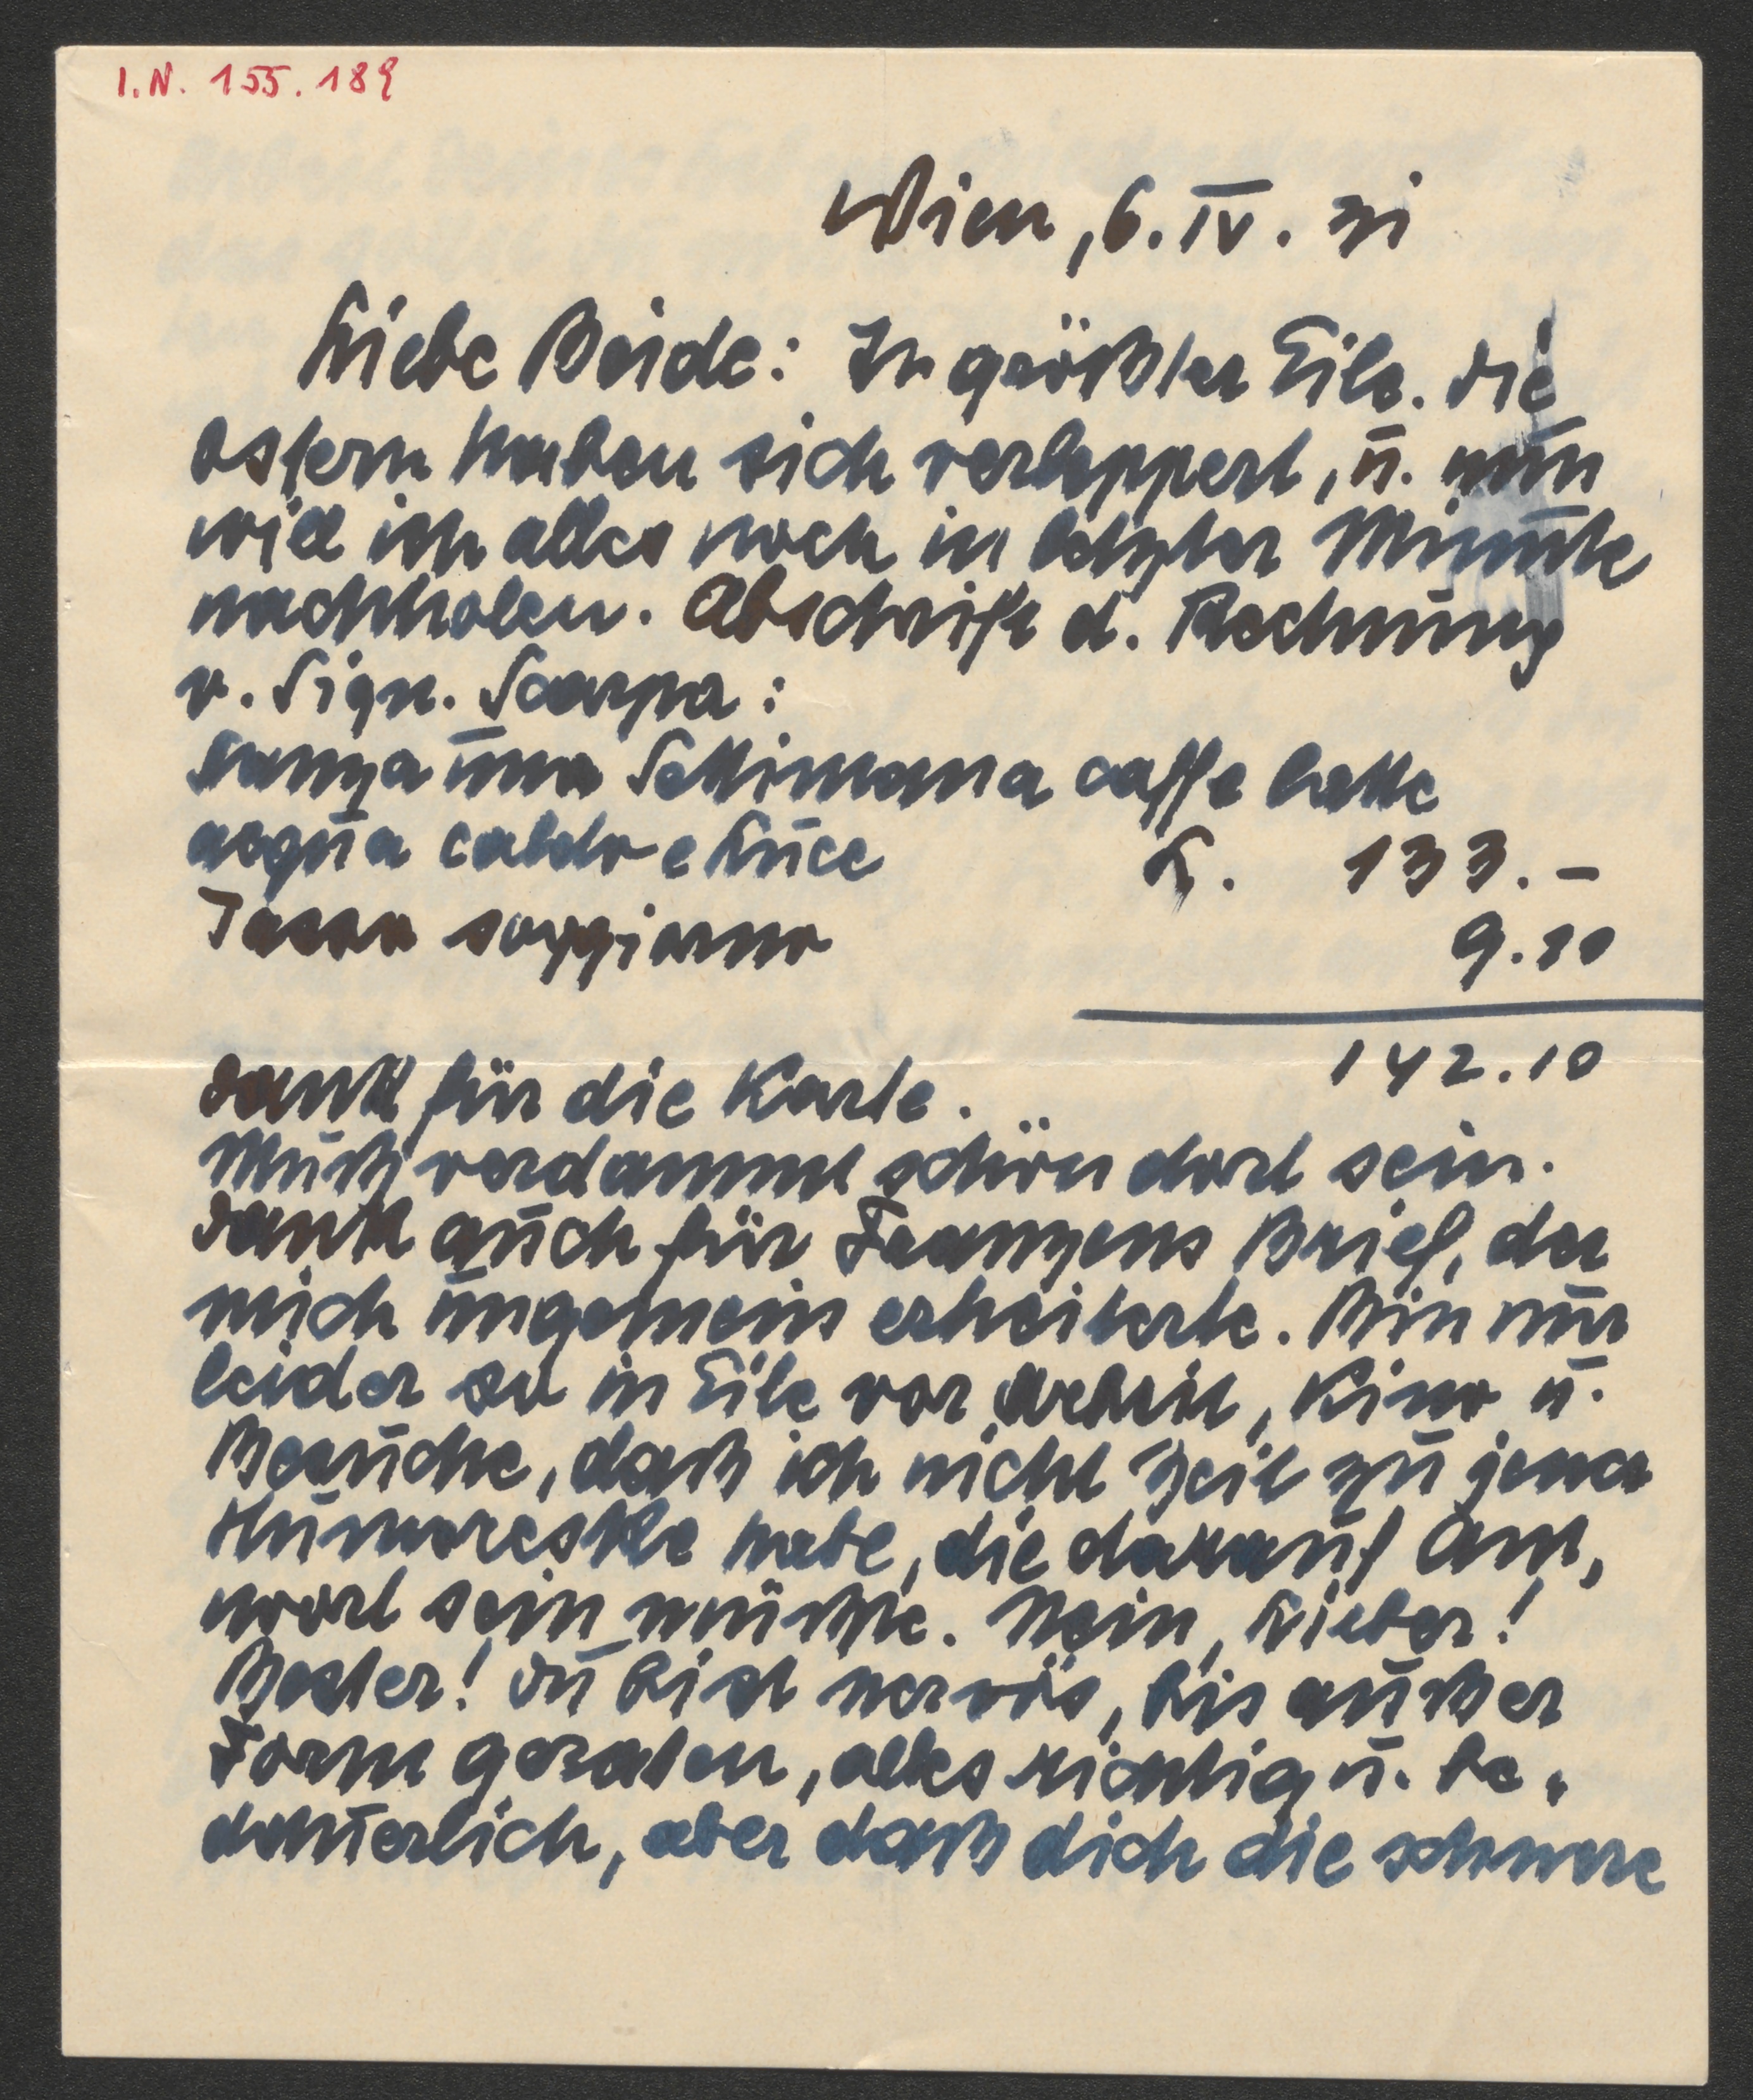 I.N. 155.189
Wien, 6. IV. 31
Liebe Beide: In größter Eile. Die
Ostern haben sich verleppert, u. nun
will ich alles noch in letzter Minute
nachholen. Abschrift d. Rechnung
v. Sign. Scarpa:
Stanza una Settimana caffe latte
acqua calda e Luce L. 133.–
Tassa soggiorno 9.10
142.10
Dank für die Karte.
Muß verdammt schön dort sein.
Dank auch für Franzens Brief, der
mich ungemein erheiterte. Bin nur
leider so in Eile vor Arbeit, Kino u.
Besuche, daß ich nicht Zeit zu jener
Humoreske habe, die darauf Ant-
wort sein müßte. Nein, Lieber!
Bester! Du bist nervös, bis außer
Form geraten, alles richtig u. be-
dauerlich, aber daß dich die schwere